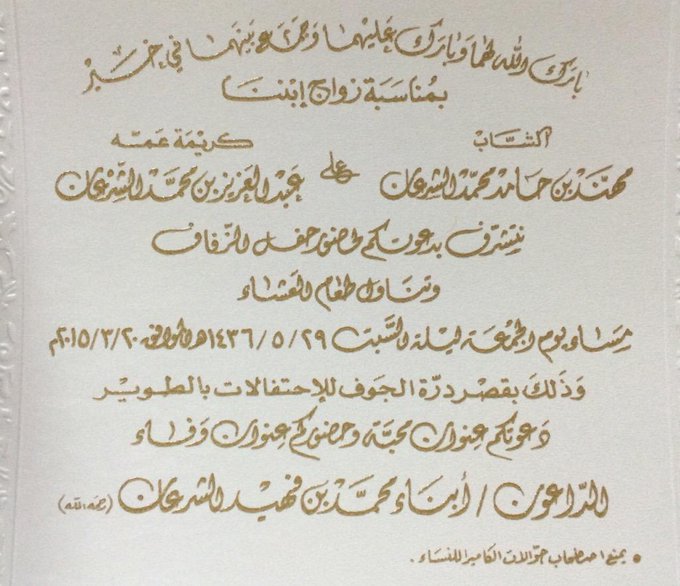 بارك الله لهما وبارك عليهما وجمع بينهما في خير
بمناسبة زواج إبننا
الشاب كريمة عمه
مهند بن حامد محمد الشرعان على عبد العزيز بن محمد الشرعان
نتشرف بدعوتكم لحضور حفل الزفاف
وتناول طعام العشاء
مساء يوم الجمعة ليلة السبت ١٤٣٦/٥/٢٩هـ الموافق ٢٠١٥/٣/٢٠م
وذلك بقصر درة الجوف للإحتفالات بالطوير
دعوتكم عنوان محبة وحضوركم عنوان وفاء
الداعون / أبناء محمد بن فهيد الشرعان (رحمه الله)
• يمنع اصطحاب جوالات الكاميرا للنساء .